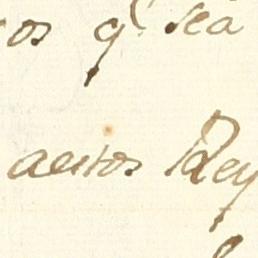 os q.^e sea
autos Rey